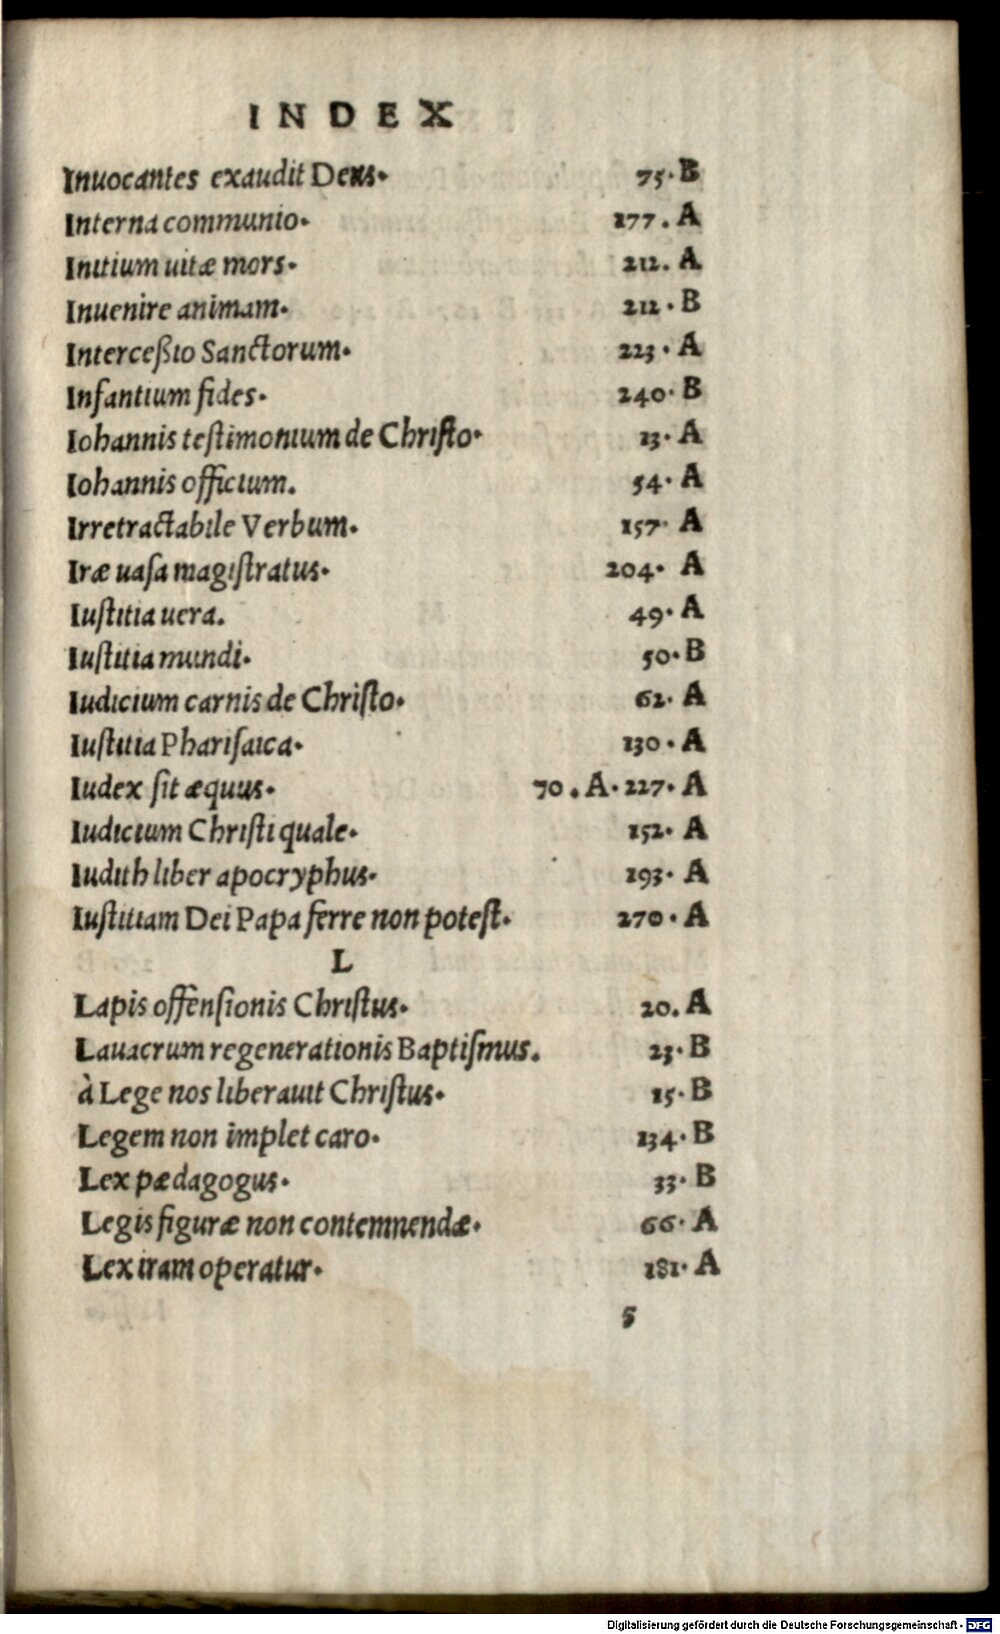 INDEX
Inuocantes exaudit Deus. 75. B
Interna communio. 177. A
Initium uitæ mors. 212. A
Inuenire animam. 212. B
Interceßio Sanctorum. 223. A
Infantium fides. 240. B
Iohannis teſtimonium de Chriſto. 13. A
Iohannis officium. 54. A
Irretractabile Verbum. 157. A
Iræ uaſa magiſtratus. 204. A
Iuſtitia uera. 49. A
Iuſtitia mundi. 50. B
Iudicium carnis de Chriſto. 62. A
Iuſtitia Phariſaica. 130. A
Iudex ſit æquus. 70. A. 227. A
Iudicium Chriſti quale. 152. A
Iudith liber apocryphus. 193. A
Iuſtitiam Dei Papa ferre non poteſt. 270. A
L
Lapis offenſionis Chriſtus. 20. A
Lauacrum regenerationis Baptiſmus. 23. B
à Lege nos liberauit Chriſtus. 15. B
Legem non implet caro. 134. B
Lex pædagogus. 33. B
Legis figuræ non contemnendæ. 66. A
Lex iram operatur. 181. A
5
Digitalisierung gefördert durch die Deutsche Forschungsgemeinschaft - DFG